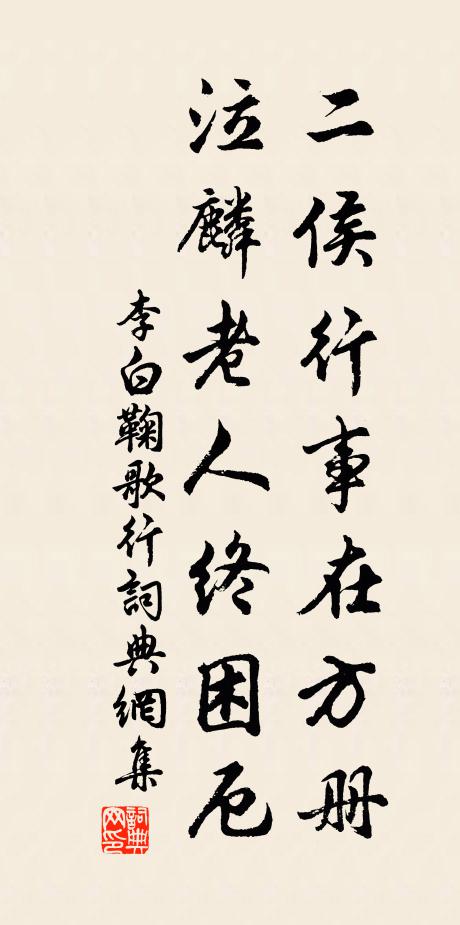 二侯行事在方册
泣麟老人终困厄
李白鞠歌行詞典網集
詞典网印